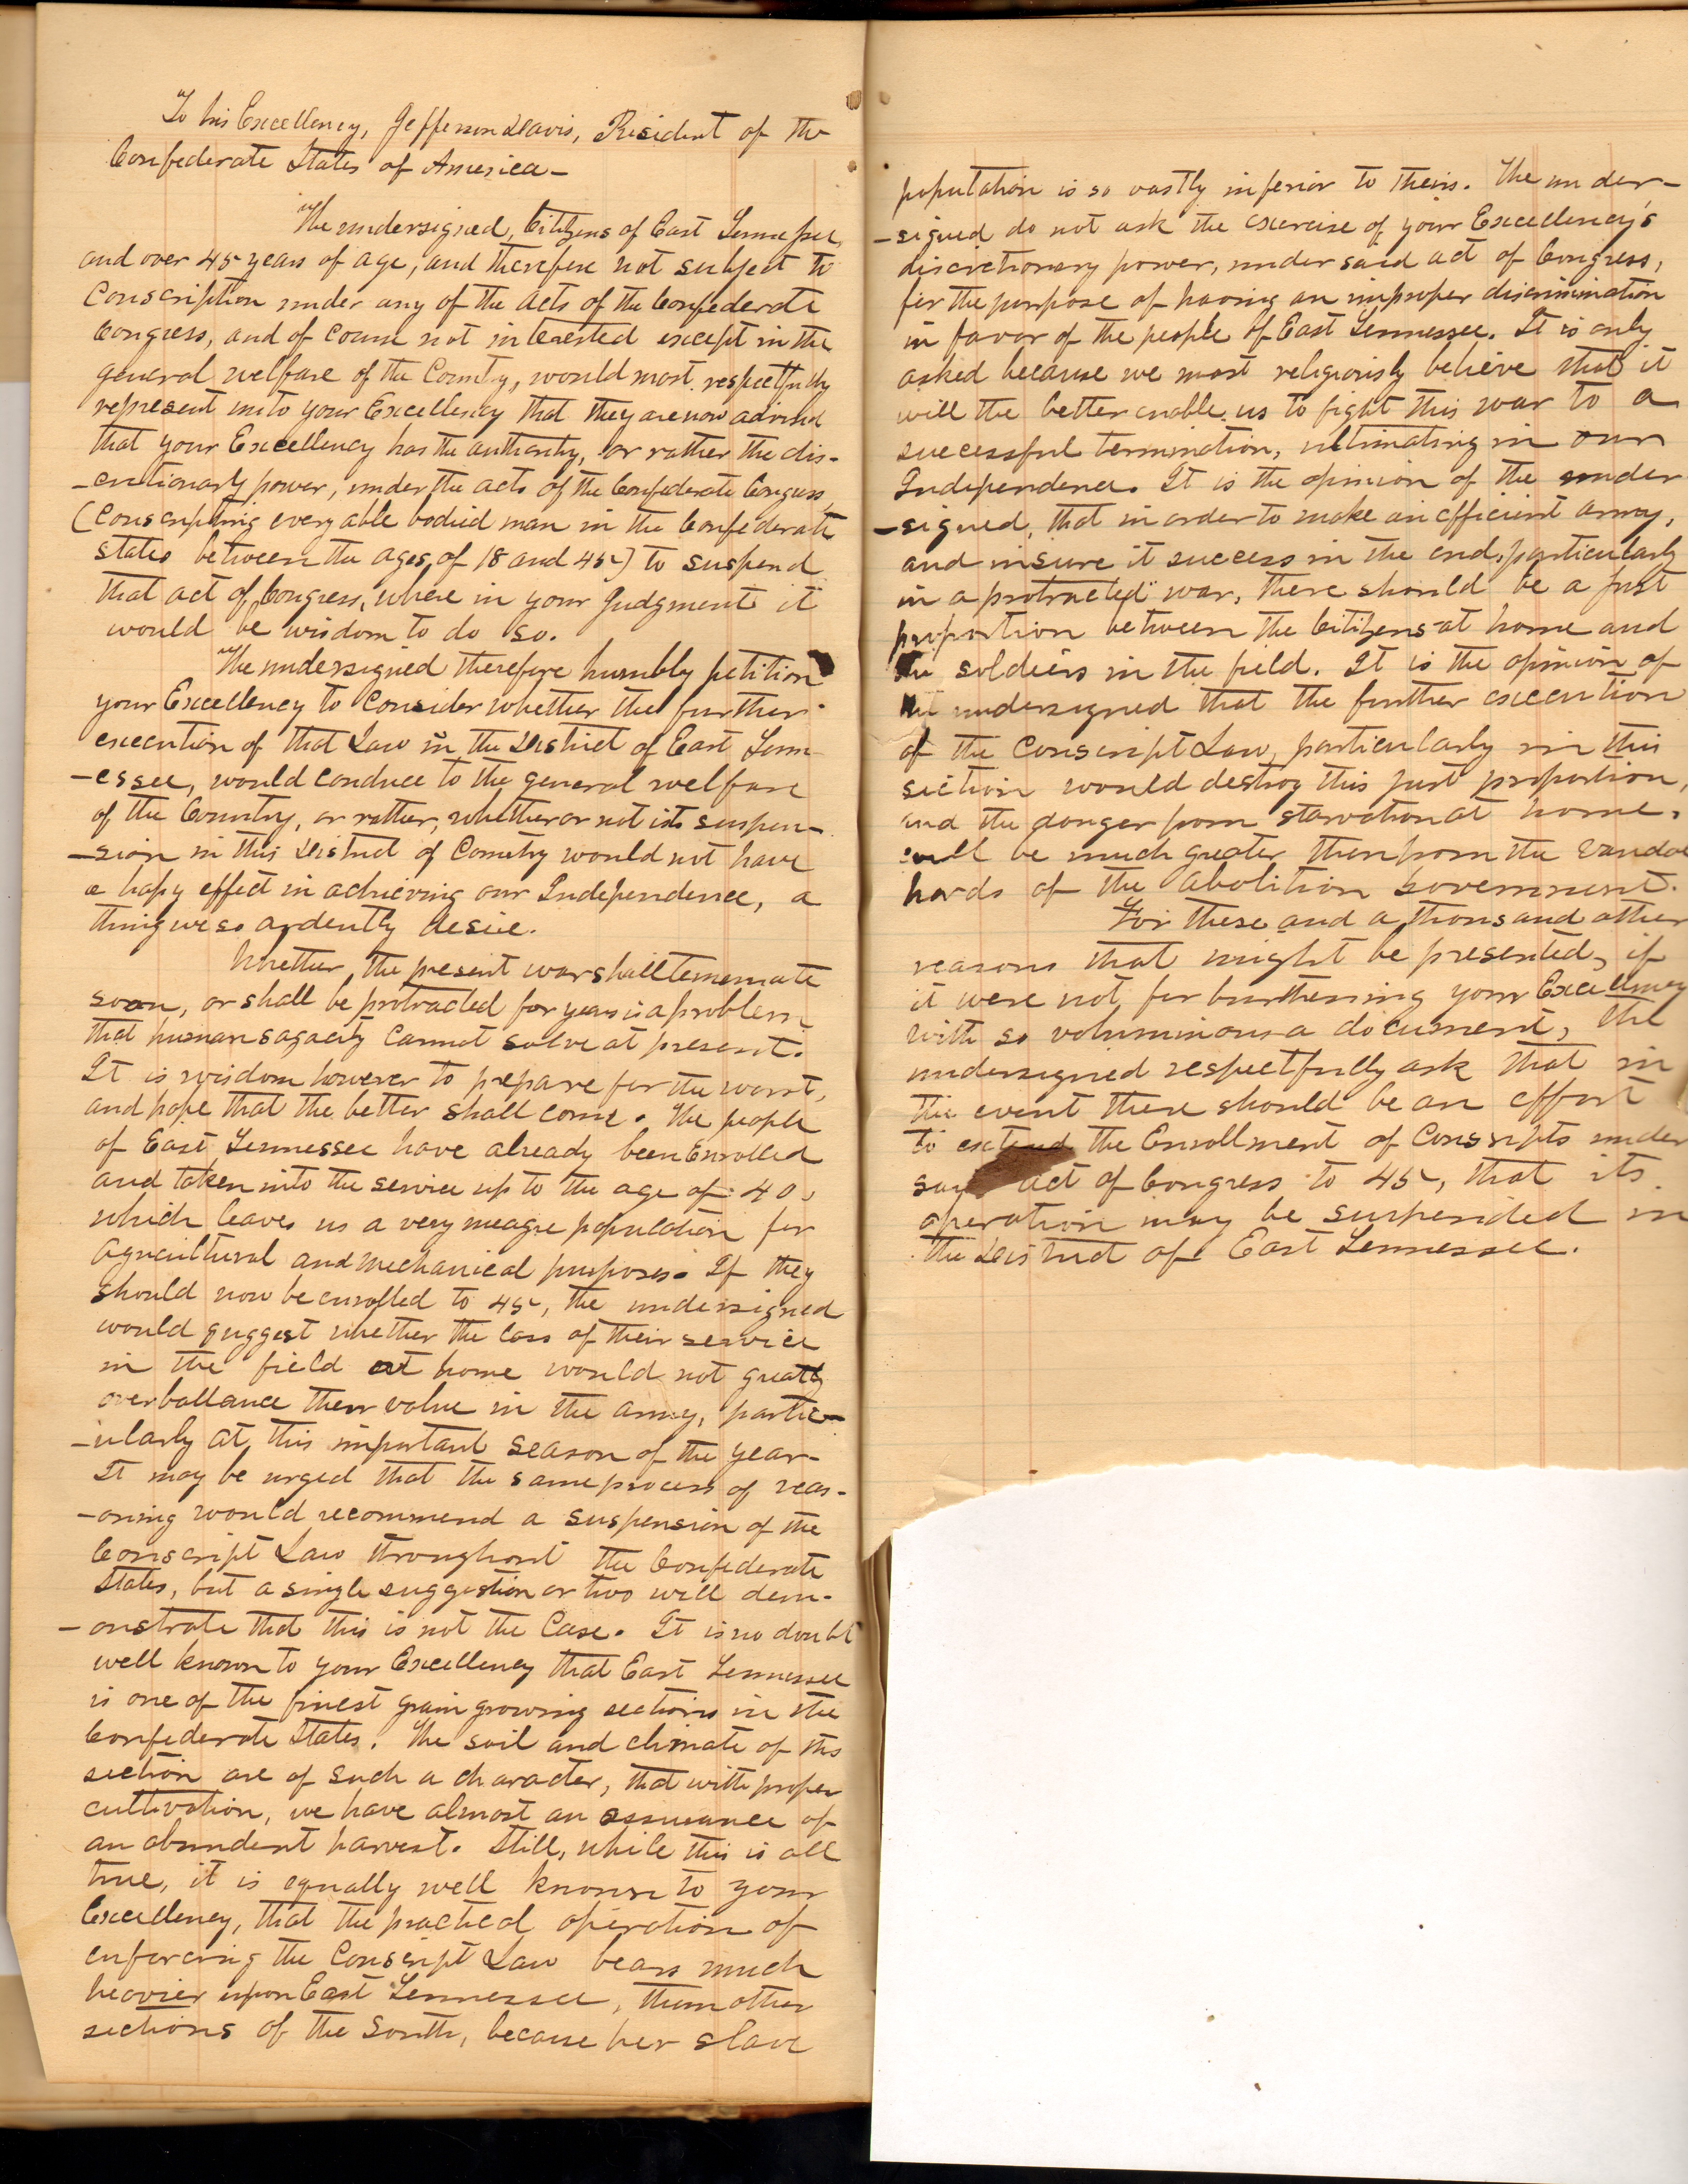 To his Excellency, Jefferson Davis, President of the
Confederate States of America—
The undersigned, Citizens of East Tennessee,
and over 45 years of age, and therefore not subject to
Conscription under any of the acts of the Confederate
Congress, and of course not interested except in the
general welfare of the Country, would most respectfully
represent unto your Excellency that they are now advised
that your Excellency has the authority, or rather the dis-
-cretionary power, under the acts of the Confederate Congress
(Conscripting every able bodied man in the Confederate
states between the ages of 18 and 45) to suspend
that act of Congress, where in your judgment it
would be wisdom to do so.
The undersigned therefore humbly petition
your Excellency to Consider whether the further
execution of that Law in the District of East Tenn-
-essee, would conduce to the general welfare
of the Country, or rather, whether or not its suspen-
-sion in this District of Country would not have
a hapy effect in achieving our Independence, a
thing we so ardently desire.
Whether the present war shall terminate
soon, or shall be protracted for years is a problem
that human sagacity cannot solve at present.
It is wisdom however to prepare for the worst,
and hope that the better shall come. The people
of East Tennessee have already been Enrolled
and taken into the service up to the age of 40,
which leaves us a very meagre population for
Agricultural and Mechanical purposes. If they
should now be enrolled to 45, the undersigned
would suggest whether the loss of their service
in the field at home would not greatly
overballance their value in the army, partic-
-ularly at this important season of the year-
It may be urged that the same process of reas-
-oning would recommend a suspension of the
Conscript Law throughout the Confederate
States, but a single suggestion or two will dem-
-onstrate that this is not the Case. It is no doubt
well known to your Excellency that East Tennessee
is one of the finest grain growing sections in the
Confederate States. The soil and climate of this
section are of such a character, that with proper
cultivation, we have almost an assurance of
an abundent harvest. Still, while this is all
true, it is equally well known to your
Excellency, that the practical operation of
enforcing the Conscript Law bears much
heavier upon East Tennessee, than other
sections of the South, because her slave
population is so vastly inferior to theirs. The under-
-signed do not ask the exercise of your Excellency's
discretionary power, under said act of Congress,
for the purpose of having an improper discrimination
in favor of the people of East Tennessee. It is only
asked because we most religiously believe that it
will the better enable us to fight this war to a
successful termination, ultimating in our
Independence. It is the opinion of the under
-signed, that in order to make an efficient army,
and insure it success in the end, particularly
in a protracted war, there should be a just
proportion between the Citizens at home and
the soldiers in the field. It is the opinion of
the undersigned that the further execution
of the Conscript Law, particularly in this
section would destroy this just proportion,
and the danger from starvation at home,
will be much greater then from the Vandal
hords of the Abolition Government.
For these and a thousand other
reasons that might be presented, if
it were not for burthening your Excellency
with so voluminous a document, the
undersigned respectfully ask that in
the event there should be an effort
to extend the Enrollment of Conscripts under
said act of Congress to 45, that its
operation may be suspended in
the District of East Tennessee.